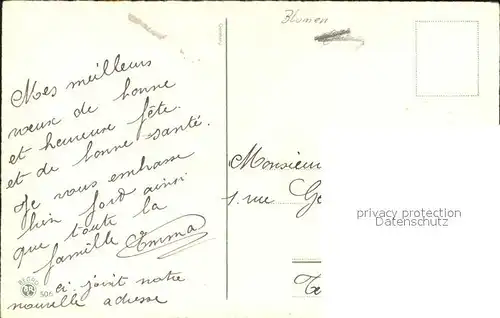 Blumen
Mes meilleurs
vœux de bonne
et heureuse fête
et de bonne santé.
Je vous embrasse
bien fort ainsi
que toute la
famille
Emma
ci joint notre
nouvelle adresse
Monsieur
1. rue Ge
privacy protection
Datenschutz
506